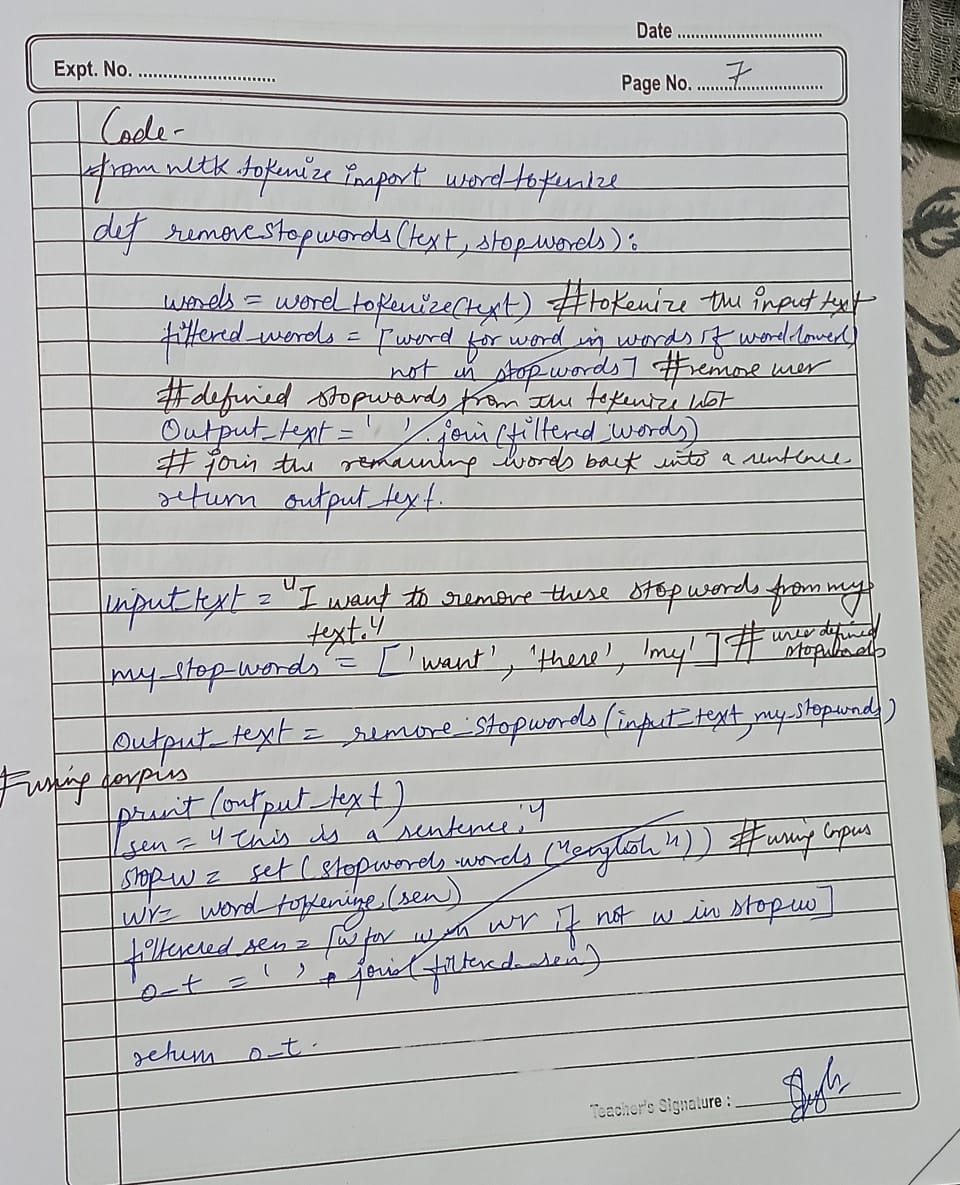 Date
Expt. No.
Page No. 7
Code-
from nltk.tokenize import word tokenize
def remove stopwords (text, stopwords):
words = word_tokenize(text) #tokenize the input text
filtered_words = [word for word in words if word.lower()
not in stopwords] #remove user
#defined stopwards from the tokenize list
Output_text = ' '. join (filtered_words)
# join the remaining words back into a sentence.
return output_text.
input text = "I want to remove these stop words from my
text."
my_stop-words = ['want', 'there', 'my'] # user defined
stopwords
Output_text = remove_stopwords (input_text, my_stopwords)
# using corpus
print (output_text)
sen = "this is a sentence."
stopw = set (stopwords.words ("english")) #using corpus
wr= word_tokenize (sen)
filtered_sen = [w for w in wr if not w in stopw]
o_t = ' ' . join( filtered_sen)
return o_t.
Teacher's Signature :